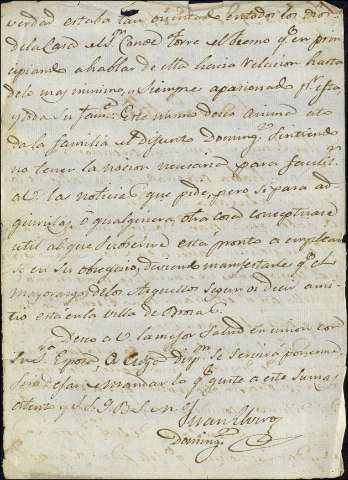 verdad estaba tan orientado en todos los
de la Casa el Sr. Canó. Torre el Bromo qe. en prin
cipiando a hablar de ella hacia relacion hasta
de lo mas minimo, y siempre apasionado pr. esta
y toda su fama. Este mismo deseo anima a to
da la familia el Difunto Doming. Sintiendo
no tener la nocion necesaria para facili
tar las noticias que pide, pero si para ad
quirirlas, o qualquiera otra cosa conceptuase
util al que suscrive está pronto a emplear
se en su obsequio, deviendo manifestarle qe. el
mayorazgo de los Arguellos segun oi decir a mi
tio está en la villa de
Deseo a V. la mejor salud en union con
su Sa. Esposa, a cuya dispn. se servirá ponerme,
sin dejar de mandar lo qe. guste a este su mas
atento y S. S. Q. B. S. M.
Juan Alvaro
Doming.